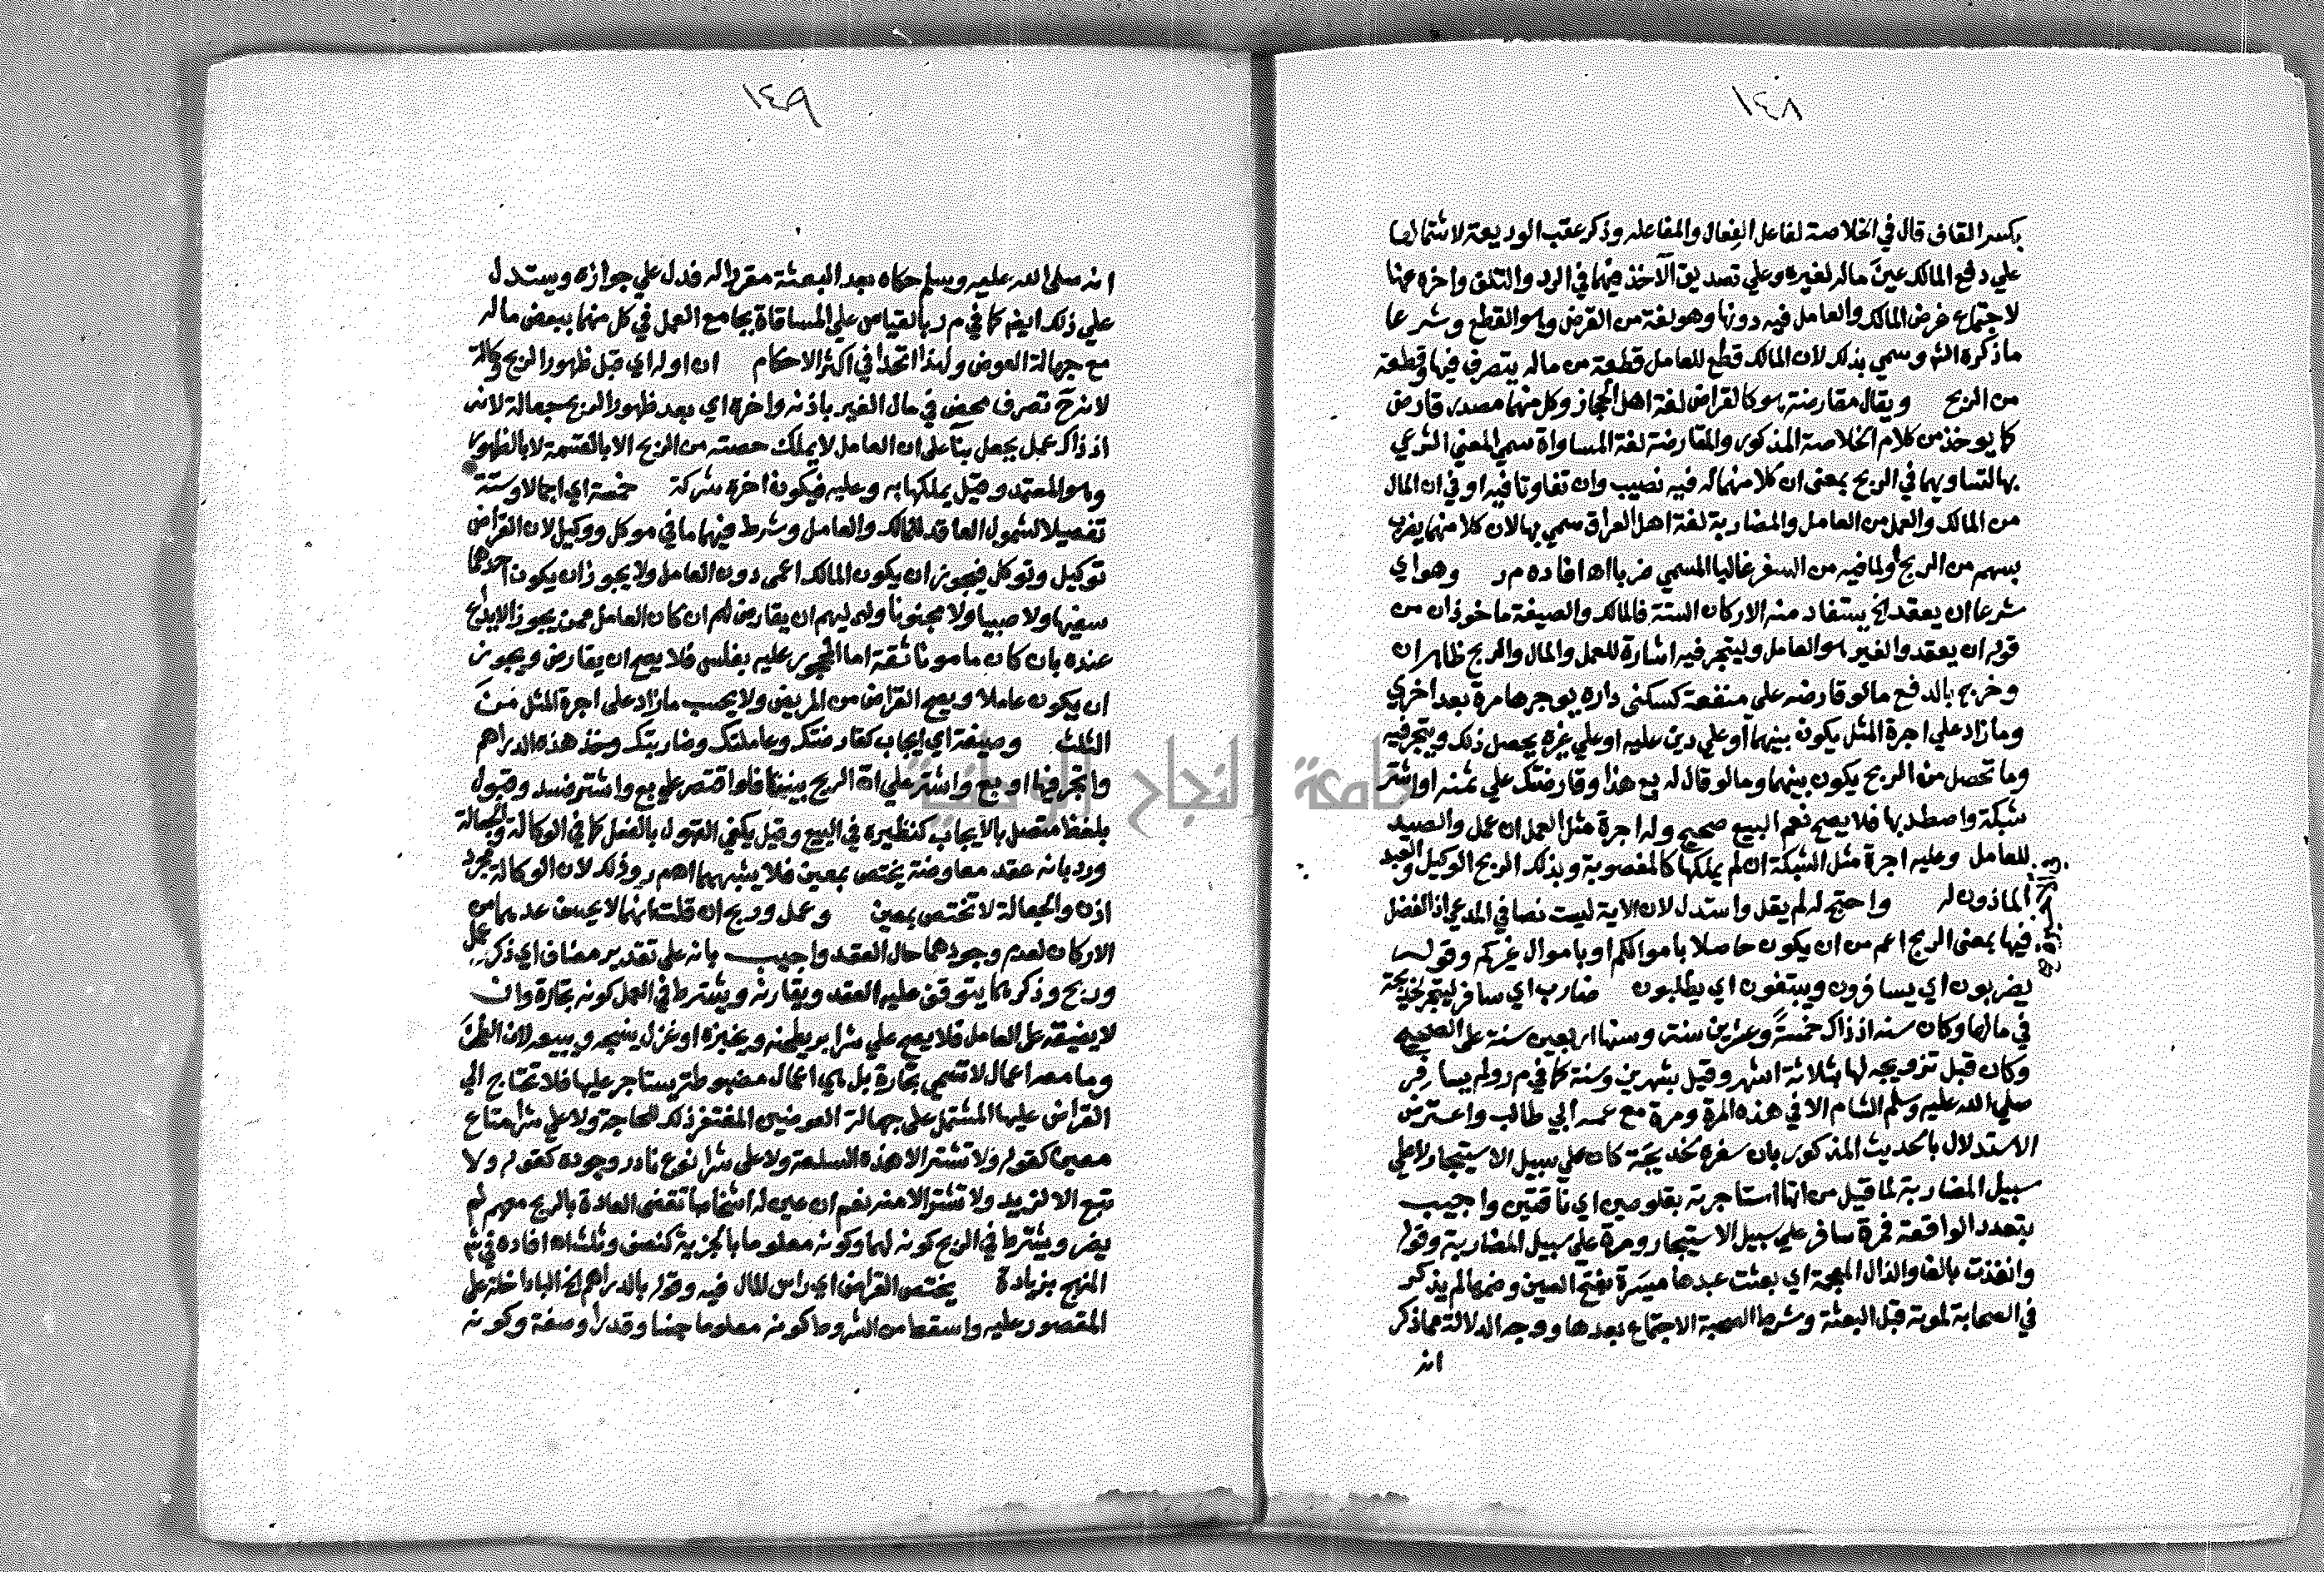 ١٤٨
بكسر القاف قال في الخلاصة لفاعل الفعال والمفاعله وذكر عقب الوديعة لاشتمالها
علي دفع المالك عين ماله لغيره وعلي تصديق الآخذ منهما في الرد والتلف واخره عنها
لاجتماع غرض المالك والعامل فيه دونها وهو لغة من القرض وهو القطع وشرعا
ما ذكره الش وسمي بذلك لان المالك قطع للعامل قطعة من ماله يتصرف فيها وقطعة
من الربح ويقال مقارضة هو كالقراض لغة اهل الحجاز وكل منهما مصدر قارض
كما يوخذ من كلام الخلاصة المذكور والمقارضة لغة المساواة سمي المعني الشرعي
بها لتساويهما في الربح بمعنى ان كلا منهما له فيه نصيب وان تفاوتا فيه او في ان المال
من المالك والعمل من العامل والمضاربة لغة اهل العراق سمي بها لان كلا منهما يضرب
بسهم من الربح ولما فيه من السفر غالبا المسمي ضربا اه افاده م ر وهو اي
شرعا ان يعقد الخ يستفاد منه الاركان الستة فالمالك والصيغة ماخوذان من
قوله ان يعقد والغير هو العامل وليتجر فيه اشارة للعمل والمال والربح ظاهران
وخرج بالدفع ما لو قارضه على منفعة كسكنى داره يوجرها مرة بعد اخري
وما زاد علي اجرة المثل يكون بينهما او علي دين عليه او علي غيره يحصل ذلك ويتجر فيه
وما تحصل من الربح يكون بينهما وما لو قال له بع هذا وقارضتك علي ثمنه او اشتر
شبكة واصطد بها فلا يصح نعم البيع صحيح وله اجرة مثل العمل ان عمل والصيد
للعامل وعليه اجرة مثل الشبكة ان لم يملكها كالمغصوبة وبذلك الربح الوكيل والعبد
الماذون له واحتج له لم يقل واستدل لان الاية ليست نصا في المدعي اذ الفضل
فيها بمعنى الربح اعم من ان يكون حاصلا باموالكم او باموال غيركم وقوله
يضربون اي يسافرون ويبتغون اي يطلبون ضارب اي سافر ليتجر لخديجة
في مالها وكان سنه اذ ذاك خمسة وعشرين سنة وسنها اربعين سنة على الصحيح
وكان قبل تزويجه لها بثلاثة اشهر وقيل بشهرين وسنة كما في م ر ولم يسافر
صلي الله عليه وسلم الشام الا في هذه المرة ومرة مع عمه ابي طالب واعترض
الاستدلال بالحديث المذكور بان سفره لخديجة كان علي سبيل الاستيجار لا علي
سبيل المضاربة لما قيل من انها استاجرته بقلوصين اي ناقتين واجيب
بتعدد الواقعة فمرة سافر علي سبيل الاستيجار ومرة على سبيل المضاربة وقوله
وانفذت بالفا والذال المعجمة اي بعثت عبدها ميسرة بفتح السين وضمها لم يذكر
في الصحابة لموته قبل البعثة وشرط الصحبة الاجتماع بعدها ووجه الدلالة مما ذكر
انه
١٤٩
انه صلى الله عليه وسلم حكاه بعد البعثة مقررا له فدل علي جوازه ويستدل
علي ذلك ايضم كما في م ر بالقياس علي المساقاة بجامع العمل في كل منهما ببعض ماله
مع جهالة العوض ولهذا اتحدا في اكثر الاحكام ان اوله اي قبل ظهور الربح وكالة
لانه ح تصرف محض في مال الغير باذنه واخره اي بعد ظهور الربح جعالة لانه
اذ ذاك عمل بجعل بنآ على ان العامل لا يملك حصته من الربح الا بالقسمة لا بالظهور
وهو المعتمد وقيل يملكها به وعليه فيكون اخره شركة خمسة اي اجمالا وستة
تفصيلا لشمول العاقد للمالك والعامل وشرط فيهما ما في موكل ووكيل لان القراض
توكيل وتوكل فيجوز ان يكون المالك اعمى دون العامل ولا يجوز ان يكون احدهما
سفيها ولا صبيا ولا مجنونا ولوليهم ان يقارض لهم ان كان العامل ممن يجوز الايداع
عنده بان كان مامونا ثقة اما المحجور عليه بفلس فلا يصح ان يقارض ويجوز
ان يكون عاملا ويصح القراض من المريض ولا يحسب ما زاد على اجرة المثل من
الثلث وصيغة اي ايجاب كقارضتك وعاملتك وضاربتك وخذ هذه الدراهم
واتجر فيها او بع واشتر علي ان الربح بيننا فلو اقتصر علي بع واشتر فسد وقبول
بلفظ متصل بالايجاب كنظيره في البيع وقيل يكفي القبول بالفعل كما في الوكالة والجعالة
ورد بانه عقد معاوضة يختص بمعين فلا يشبههما اه م ر وذلك لان الوكالة مجرد
اذن والجعالة لا تختص بمعين وعمل وربح ان قلت انهما لا يحسن عدهما من
الاركان لعدم وجودهما حال العقد واجيب بانه على تقدير مضاف اي ذكر عمل
وربح وذكرهما يتوقف عليه العقد ويقارنه ويشترط في العمل كونه تجارة وان
لا يضيقه على العامل فلا يصح علي شرا بر يطحنه ويخبزه او غزل ينسجه ويبيعه لان الطحن
وما معه اعمال لا تسمي تجارة بل هي اعمال مضبوطة يستاجر عليها فلا تحتاج الي
القراض عليها المشتمل على جهالة العوضين المغتفر ذلك للحاجة ولا علي شرا متاع
معين كقوله ولا تشتر الا هذه السلعة ولا على شرا نوع نادر وجوده كقوله ولا
تبع الا لزيد ولا تشتر الا منه نعم ان عين له اشخاصا تقضى العادة بالربح معهم لم
يضر ويشترط في الربح كونه لهما وكونه معلوما بالجزئية كنصف وثلث اه افاده في ش
المنهج بزيادة يختص القراض اي راس المال فيه وقوله بالدراهم الخ البا داخلة على
المقصور عليه واسقط من الشروط كونه معلوما جنسا وقدرا وصفة وكونه
جامعة النجاح الوطنية